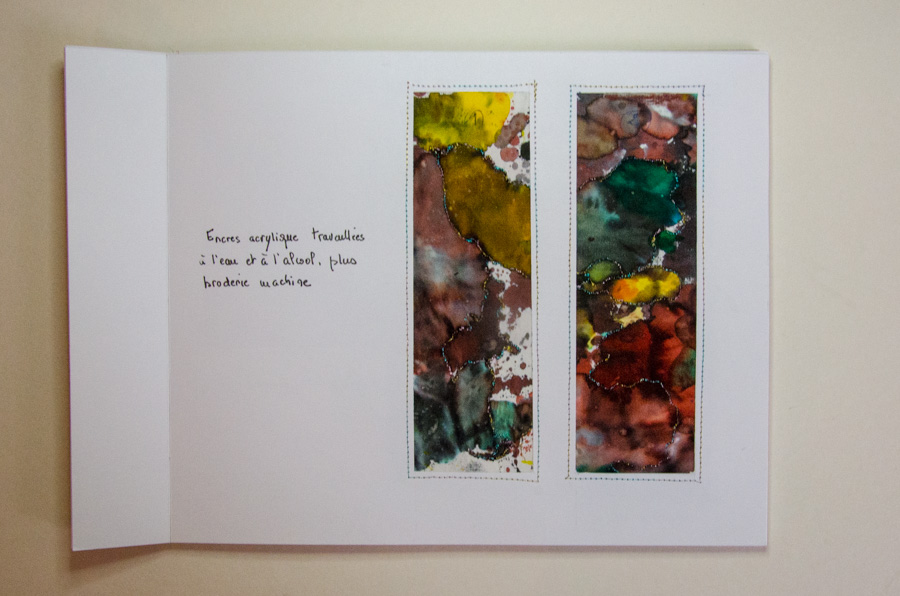 Encres acrylique travaillées
à l'eau et à l'alcool, plus
broderie machine